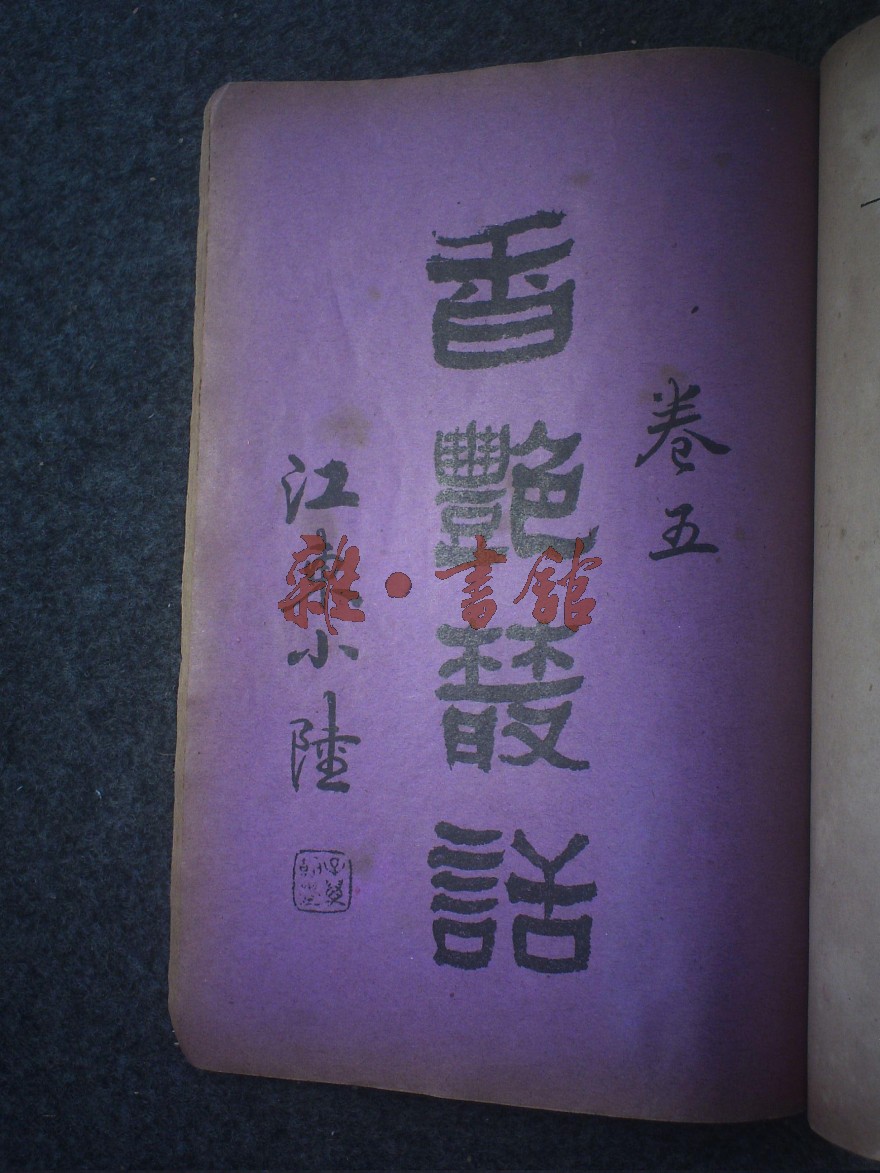 卷五
香艷叢話
江東小陸
雜·書館